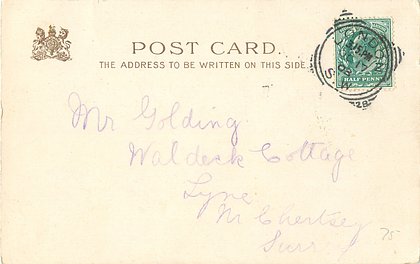 POST CARD.
THE ADDRESS TO BE WRITTEN ON THIS SIDE.
LONDON
S.W
HALF PENNY
28
Mr Golding
Waldeck Cottage
Lyne
Nr Chertsey
Surr
75